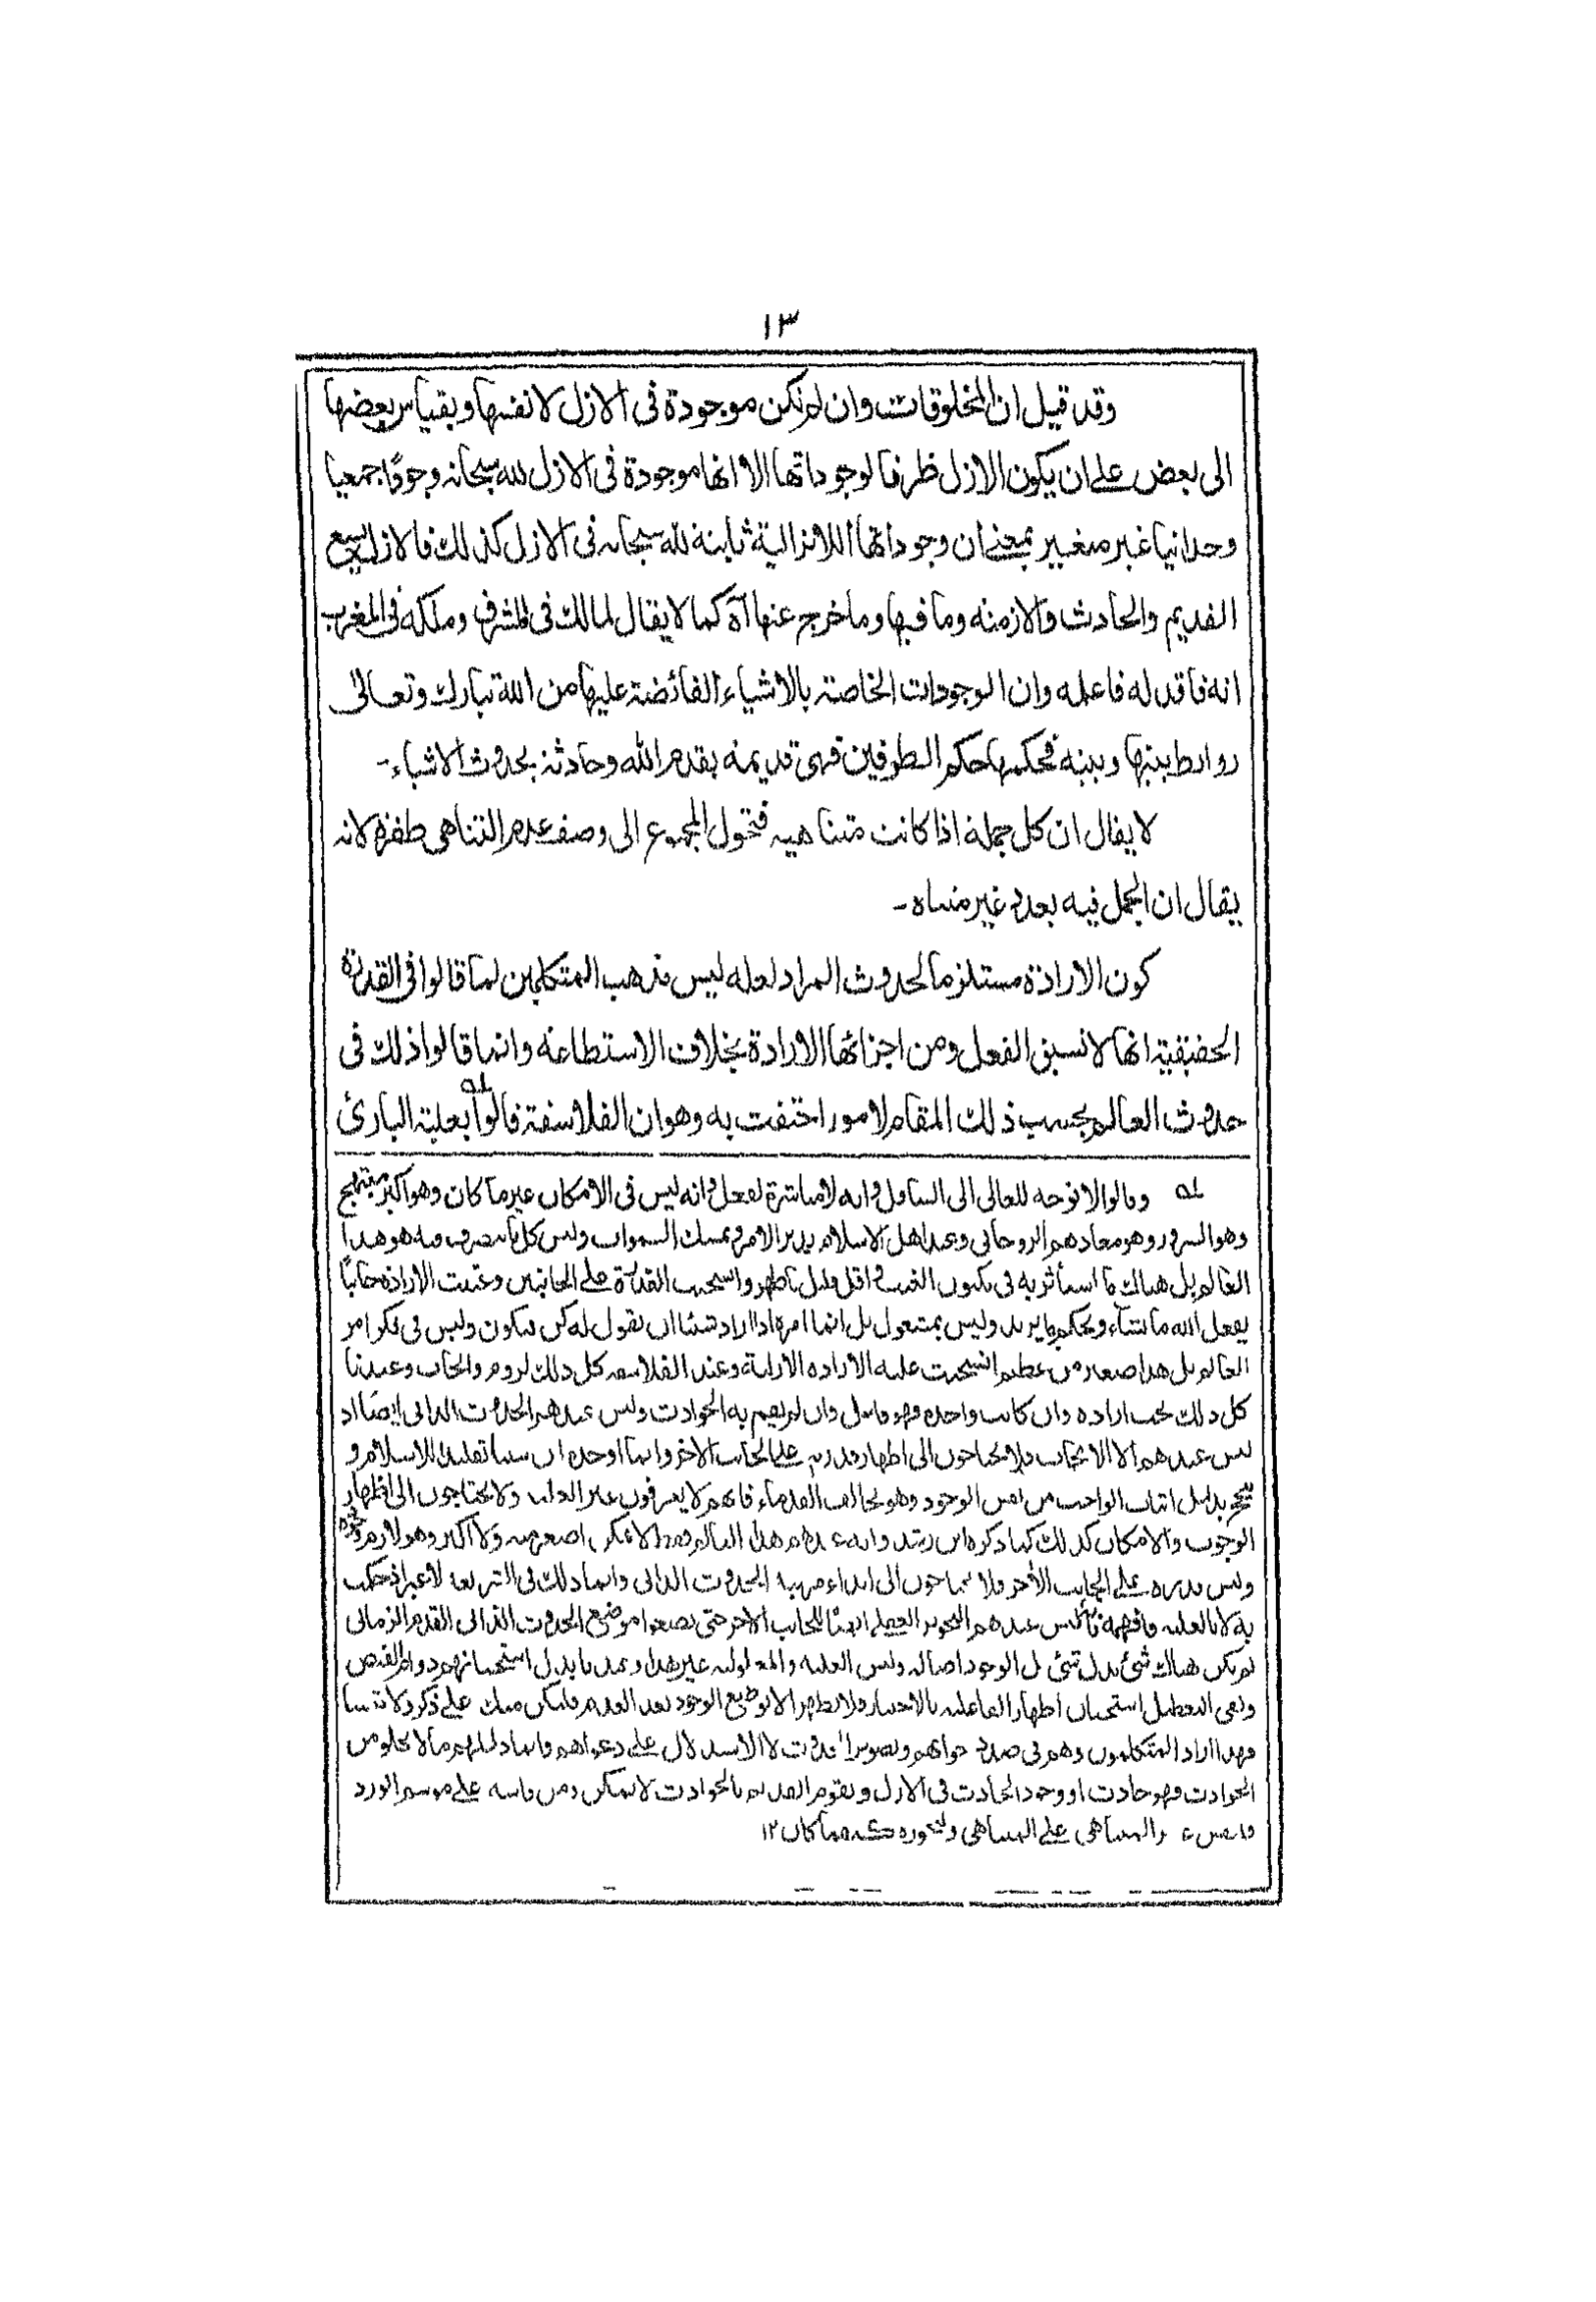 ١٣
وقد قيل ان المخلوقات وان لم تكن موجودة في الازل لانفسها وبقياس بعضها
الى بعض على ان يكون الازل ظرفا لوجوداتها الا انها موجودة في الازل لله سبحانه وجودًا جمعيا
وحدانيا غير متغير بمعنى ان وجوداتها اللانزالية ثابتة لله سبحانه في الازل كذلك فالازل يسع
القديم والحادث والازمنه وما فيها وما خرج عنها اه كما لا يقال لمالك في المشرق وملكه في المغرب
انه فاقد له فاعله وان الوجودات الخاصة بالاشياء الفائضة عليها من الله تبارك وتعالى
روابط بينها وبينه فحكمها حكم الطرفين فهى قديمه بقدم الله وحادثة بحدوث الاشياء-
لا يقال ان كل جملة اذا كانت متناهيه فتحول المجموع الى وصف عدم التناهى طفرة لانه
يقال ان الجمل فيه بعدد غير متناه-
كون الارادة مستلزما لحدوث المراد لعله ليس مذهب المتكلمين لما قالوا في القدرة
الحقيقية انها لا تسبق الفعل ومن اجزائها الارادة بخلاف الاستطاعة وانما قالوا ذلك في
حدوث العالم بحسب ذلك المقام لامور احتفت به وهو ان الفلاسفة قالوا ـه بعلية البارئ
ـه وقالوا لا توجه للعالى الى السافل وانه لا مباشرة لفعل وانه ليس فى الامكان غير ما كان وهو اكبر مبتهج
وهو السرور وهو معادهم الروحانى وعند اهل الاسلام يدبر الامر ويمسك السموات وليس كل ما يتصرف فيه هو هذا
العالم بل هناك ما استأثر به فى مكنون الغيب اقل قليل ما ظهر وانسحبت القدرة على الجانبين وعينت الارادة جانبًا
يفعل الله ما يشاء ويحكم ما يريد وليس بمشغول بل انما امره اذا اراد شيئا ان يقول له كن فيكون وليس فى فكر امر
العالم بل هذا صغير من عظيم انسحبت عليه الارادة الازلية وعند الفلاسفه كل ذلك لزوم وايجاب وعندنا
كل ذلك تحت اراده وان كانت واحده فهو فاعل وان لم يقم به الحوادث وليس عندهم الحدوث الذاتى ايضا اذ
ليس عندهم الا الايجاب فلا يحتاجون الى اظهار قدرته على الجانب الاخر وانما اوجده ابن سينا تقليدا للاسلام و
بدليل اثبات الواجب من نفس الوجود وهو يخالف القدماء فانهم لا يعرفون غير العليه ولا يحتاجون الى اظهار
الوجوب والامكان كذلك كما ذكره ابن رشد وانه عندهم هذا العالم فقط لا يمكن اصغر منه ولا اكبر وهو لازم
وليس قدره على الجانب الأخر فلا يحتاجون الى ابداء مرتبة الحدوث الذاتى وانما ذلك فى الشريعه
به لا بالعليه فافهمه فأليس عندهم التجويز العقلى ايضًا للجانب الاخر حتى يضعوا موضع الحدوث الذاتى القدم الزمانى
لم يكن هناك شئ بدل شئ بل الوجود اصاله وليس العليه والمعلوليه غير هذا وعندنا بدل استحسانهم دوام الفيض
ونفى التعطيل استحسان اظهار الفاعليه بالاختيار ولا يظهر الا بوضع الوجود بعد العدم فليكن منك على ذكر ولا تنسا
فهذا اراد المتكلمون وهم فى صدد دعواهم وتصوير لا الاستدلال على دعواهم وانما دليلهم ما لا يخلو من
الحوادث فهو حادث او وجود الحادث فى الازل وتقوم القديم بالحوادث لا يمكن ومن قاسه على موسم الورد
المتناهى على المتناهى ما كان ١٢